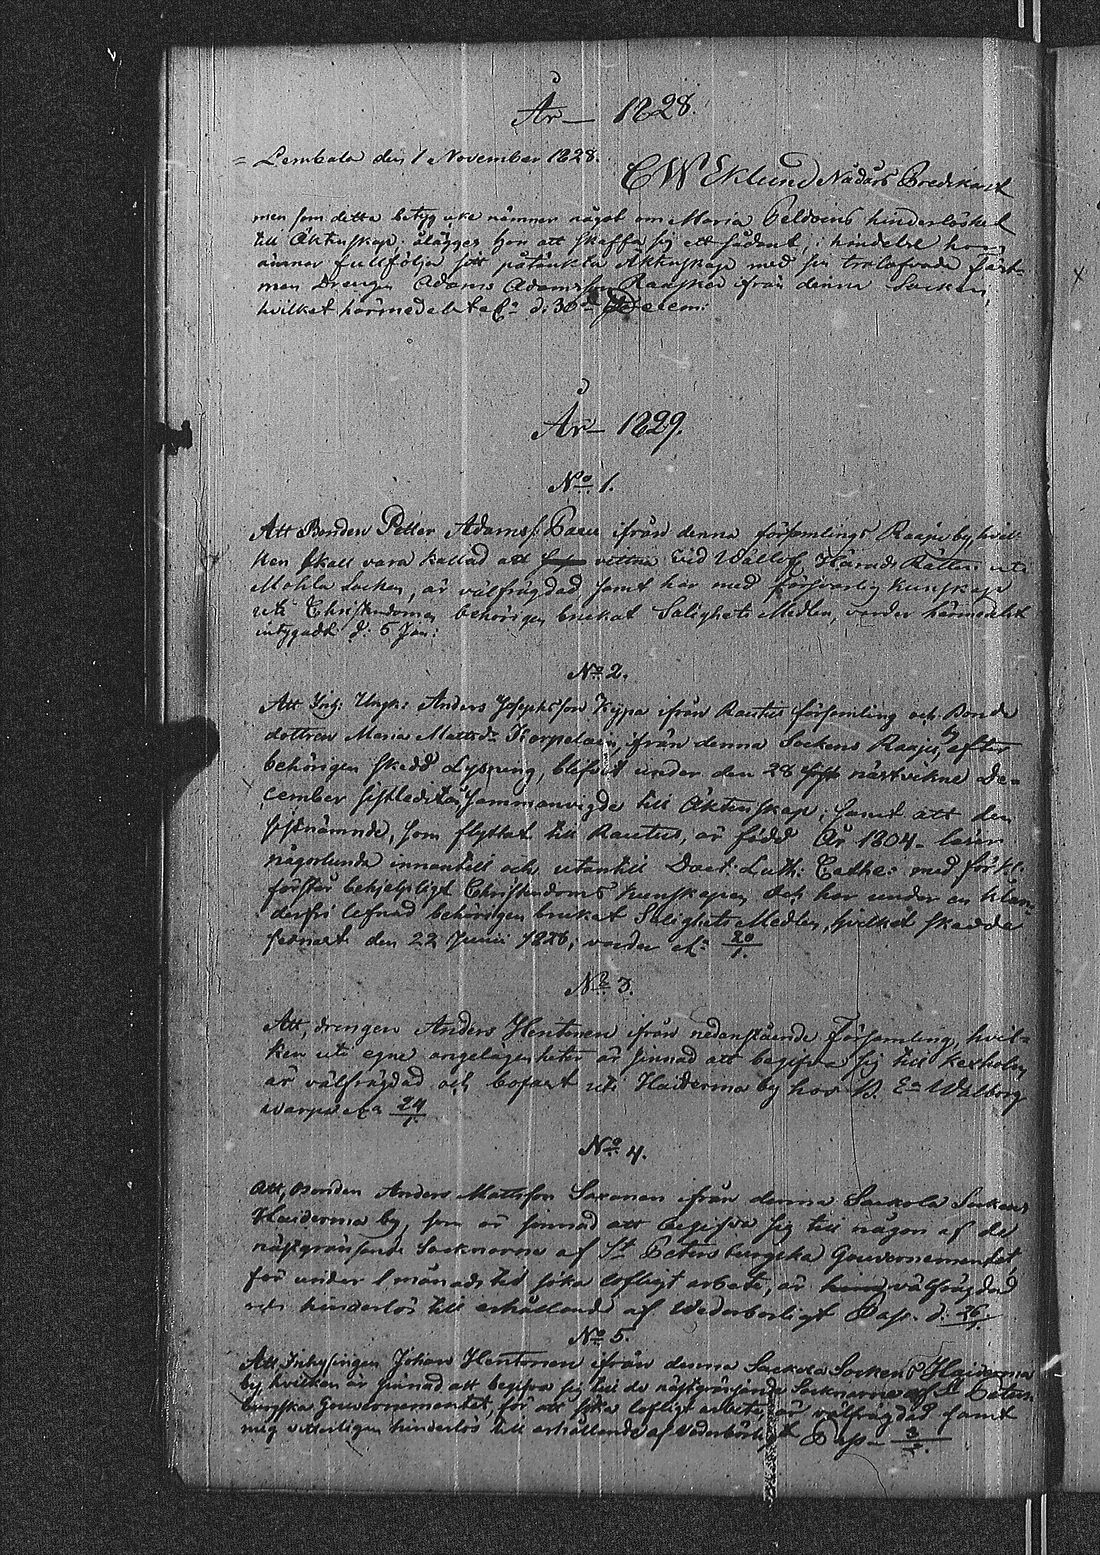 År 1828.
= Lembala den 1 November 1828.
C W Eklund Nådårs Predikant
men som detta betyg icke nämner något om Maria hinderlöshet
till Äktenskap; ålägges hon att skaffa sig ett sådant, i händelse hon
ämnar fullfölja sitt påtänkta Äktenskap med sin trolofvade Fäst-
man Drengen Adam Adamsson Raaska ifrån denna Socken,
hvilket härmedelst d: 30 Decem:
År 1829.
No 1.
Att Bonden Petter Adamss: Paeu ifrån denna församlings Raaju by, hvil-
ken skall vara kallad att vittna vid Härads Rätten uti
Mohla Socken, är välfrägdad samt har med försvarlig kunskap
uti Christendomen behörigen brukat Salighets Medlen, varder härmedelst
intygadt d: 5 Jan:
No 2.
Att Ynk: Anders Josephsson Kÿpa ifrån Rautus församling och Bonde
dottren Maria Mattsdr Korpelain, ifrån denna Sockens Raaju by, efter
behörigen skedd Lysning, blifvit under den 28 nästvikne De-
cember sistledit sammanvigde till Äktenskap; samt att den
sistnämnde, som flyttat till Rautus, är född År 1804 läser
någorlunda innantill och utantill Doct: Luth: Cathe: med förkl:
förstår behjelpligt Christendoms kunskapen och har under en klan-
derfri lefnad behörigen brukat Salighets Medlen, hvilket skedde
sednast den 22 Junii 1828; varder At: 20/1.
No 3.
Att, drengen Anders Hentonen ifrån nedanstående Församling, hvil-
ken uti egne angelägenheter är sinnad att begifva sig till Kexholm
är välfrägdad och bofast uti Haiderma by hos B. Ea Walborg
24/1.
No 4.
Att, Bonden Anders Mattsson Saxonen ifrån denna Sackola Sockens
Haiderma by, som är sinnad att begifva sig till någon af de
nästgränsande Socknarne af St Petersburgska Gouvernementet,
för under 1 månads tid söka lofligt arbete, är välfrägdad
och hinderlös till erhållande af Wederbörligt Pass. d: 26/1.
No 5.
Att Inhysingen Johan Hentonen ifrån denna Sackola Socken Haiderma
by, hvilken är sinnad att begifva sig till de nästgränsande Socknarne af St Peters-
burgska Gouvernementet, för att söka lofligt arbete, är välfrägdad samt
mig veterligen hinderlös till erhållande af Wederbörligt Pass 3/2.